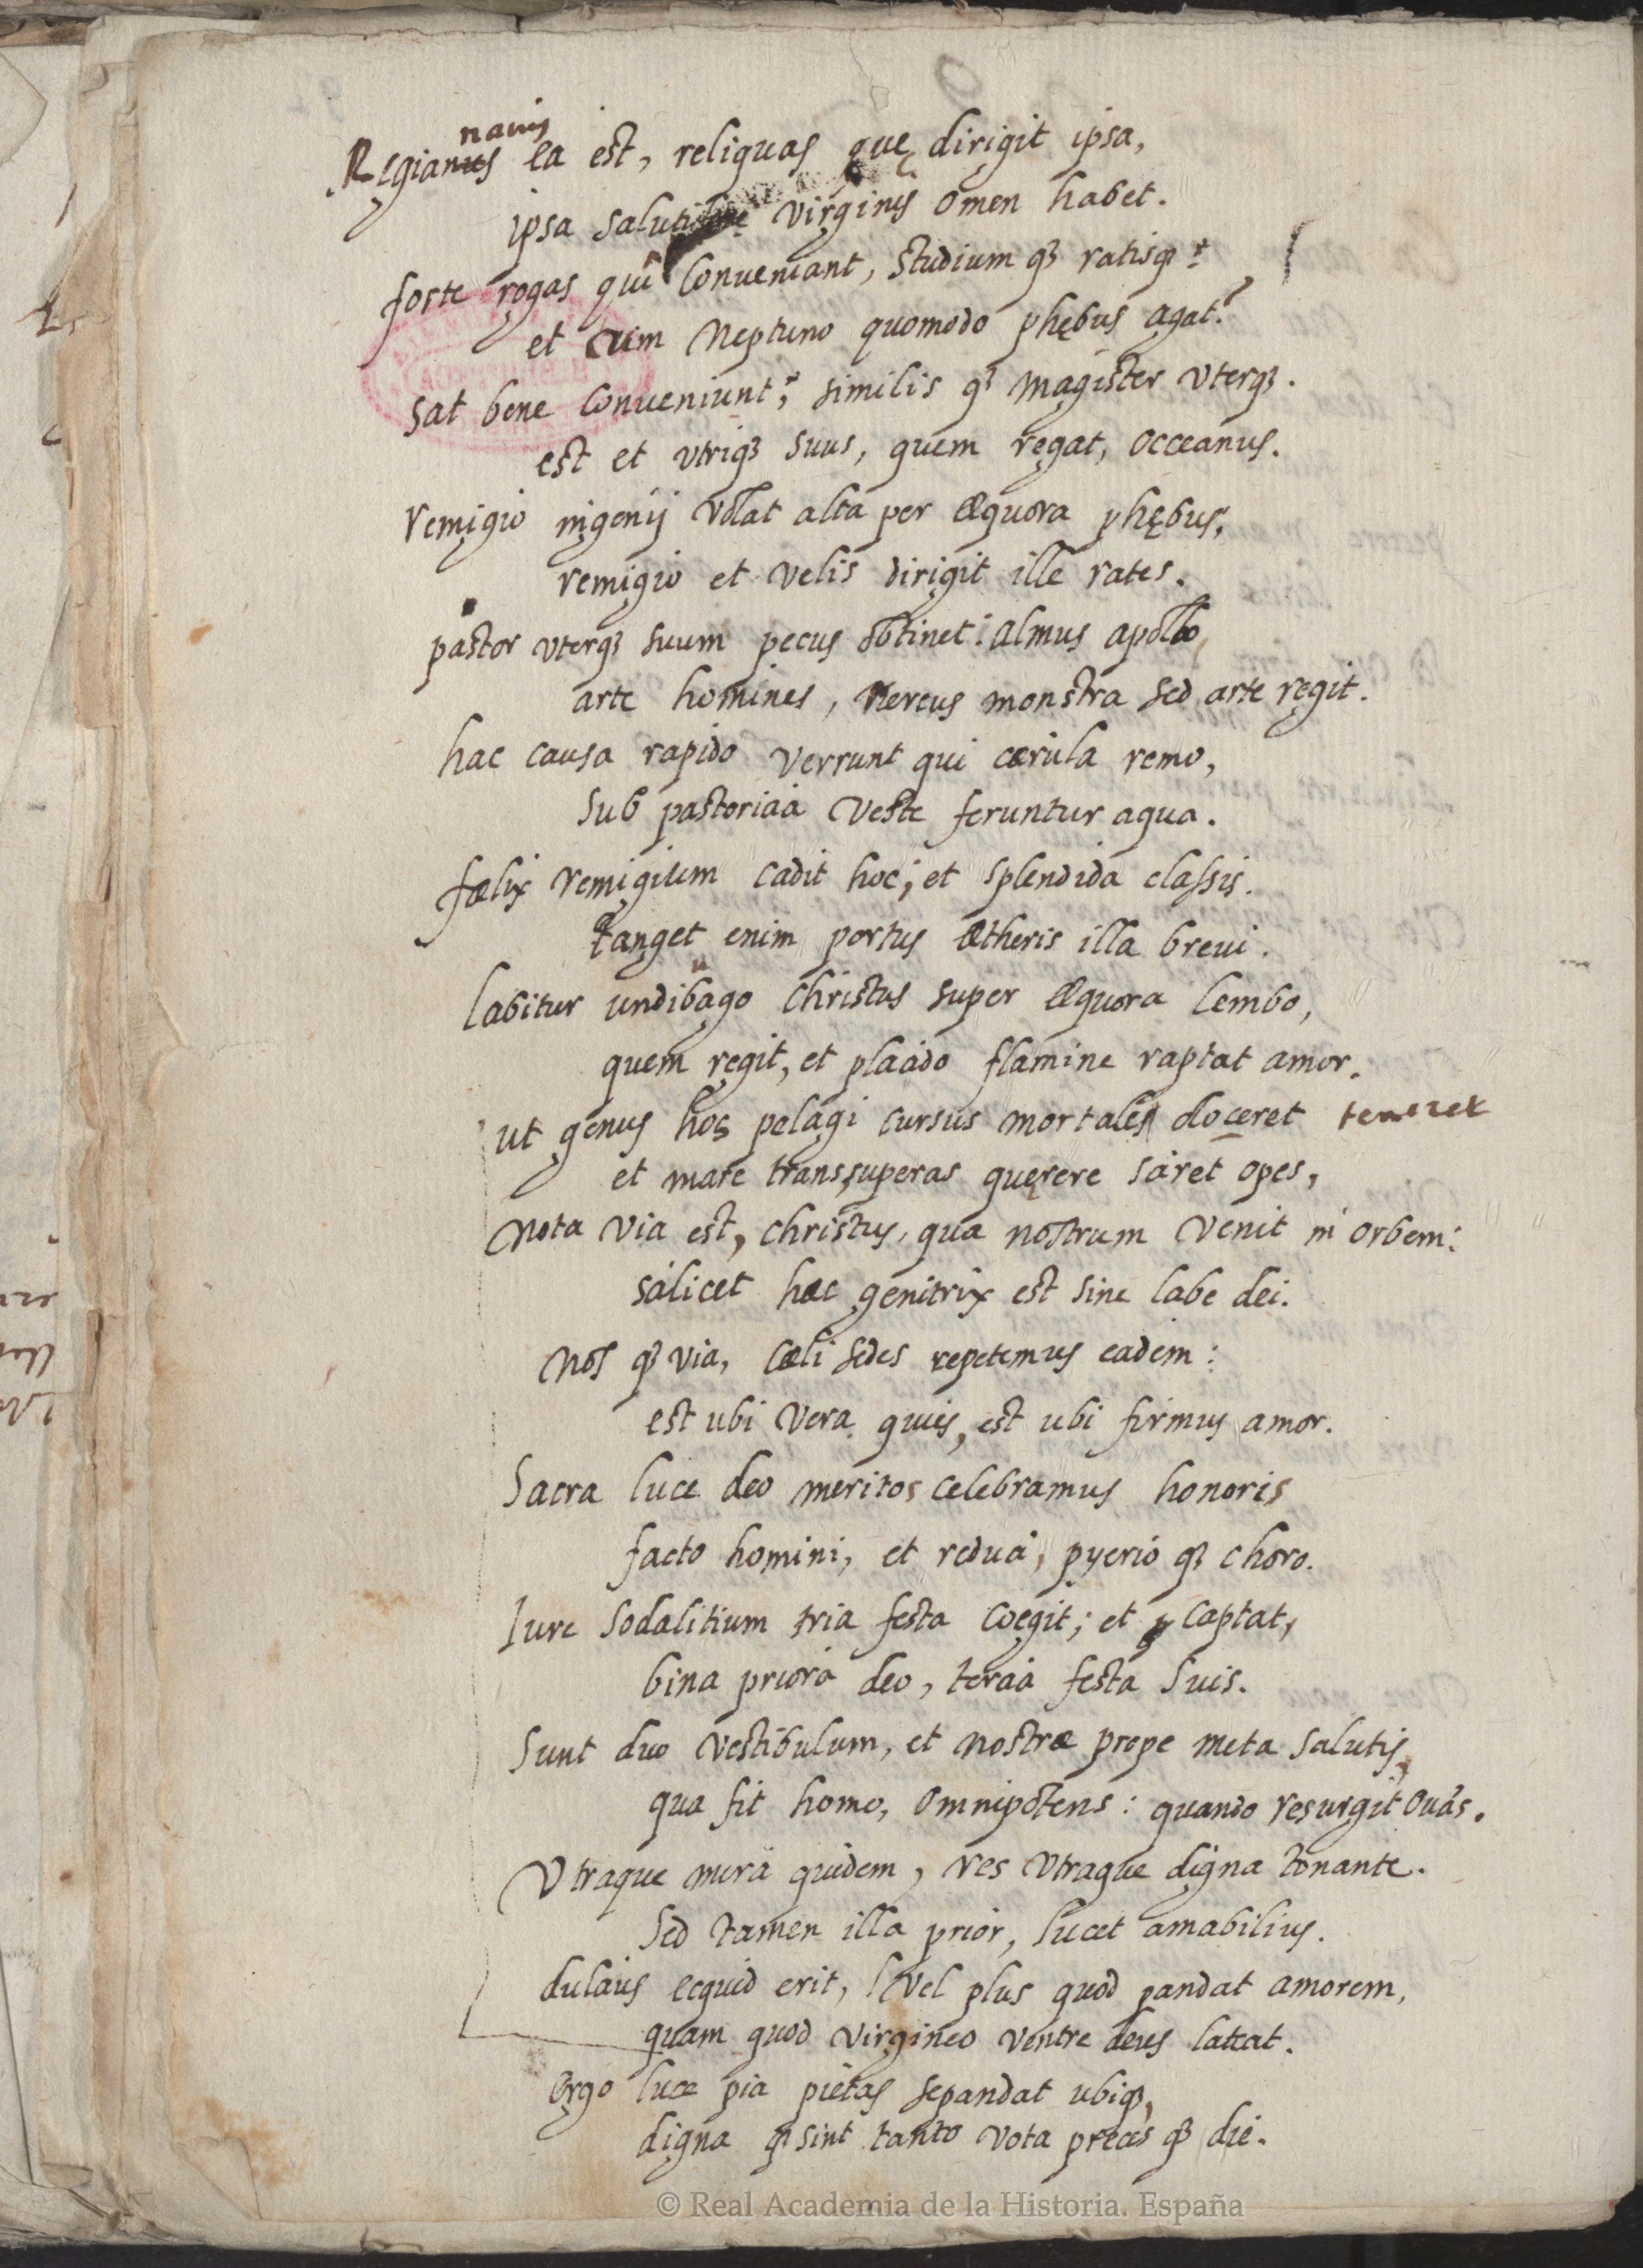 navis
Regianus ea est, reliquas quę dirigit ipsa,
ipsa salutiferę virginis omen habet.
forte rogas qui conveniant, studium q3 ratisq3?
et cum Neptuno quomodo phębus agat?
sat bene conveniunt, similis q3 magister vterq3.
est et vtriq3 suus, quem regat, occeanus.
Remigio ingenij volat alta per æquora phębus,
remigio et velis dirigit ille rates.
pastor vterq3 suum pecus obtinet: almus apollo
arte homines, Nereus monstra sed arte regit.
hac causa rapido verrunt qui cærula remo,
sub pastoricia veste feruntur aqua.
fælix remigium cadit hoc; et splendida classis.
tanget enim portus ætheris illa brevi.
labitur undibago christus super æquora lembo,
quem regit, et placido flamine raptat amor.
ut genus hoc pelagi cursus mortales doceret teneret
et mare trans superas quęrere sciret opes,
Nota via est, christus, qua nostrum venit in orbem:
scilicet hæc genitrix est sine labe dei.
Nos q3 via, cæli sedes repetemus eadem:
est ubi vera quies, est ubi firmus amor.
Sacra luce deo meritos celebramus honoris
facto homini, et reduci, pyerio q3 choro.
Iure sodalitium tria festa coegit; et captat,
bina priora deo, tercia festa suis.
Sunt duo vestibulum, et nostræ prope meta salutis,
qua fit homo, omnipotens: quando resurgit ovãs.
Vtraque mira quidem, res vtraque digna tonante.
sed tamen illa prior, lucet amabilius.
dulcius ecquid erit, vel plus quod pandat amorem,
quam quod virgineo ventre deus lateat.
Ergo luce pia pietas sepandat ubiq3,
digna q3 sint tanto vota preces q3 die.
© Real Academia de la Historia. España